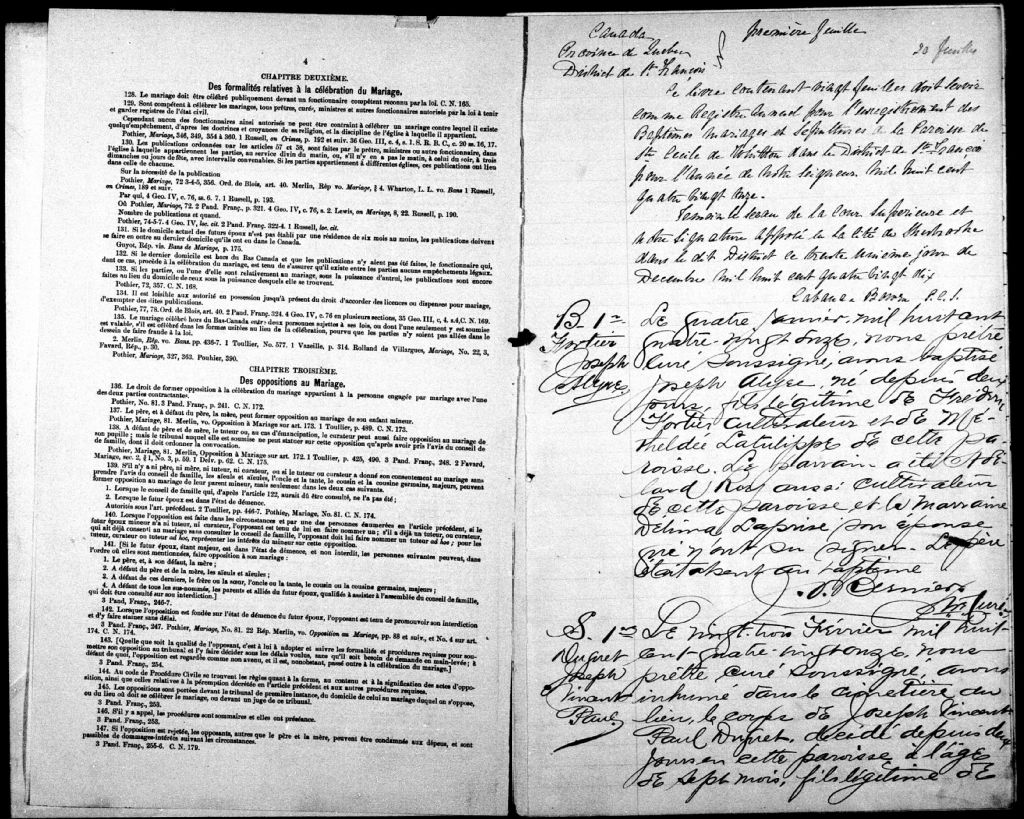 4
CHAPITRE DEUXIÈME.
Des formalités relatives à la célébration du Mariage.
128. Le mariage doit être célébré publiquement devant un fonctionnaire compétent reconnu par la loi. C. N. 165.
129. Sont compétents à célébrer les mariages, tous prêtres, curé, ministres et autres fonctionnaires autorisés par la loi à tenir
et garder registres de l'état civil.
Cependant aucun des fonctionnaires ainsi autorisés ne peut être contraint à célébrer un mariage contre lequel il existe
quelqu'empêchement, d'après les doctrines et croyances de sa religion, et la discipline de l'église à laquelle il appartient.
Pothier, Mariage, 346, 349, 354 à 360, 1 Russell, on Crimes, p. 192 et suiv. 36 Geo. III, c. 4, s. 1. S. R. B. C., c. 20 ss. 16, 17.
130. Les publications ordonnées par les articles 57 et 58, sont faites par le prêtre, ministre ou autre fonctionnaire, dans
l'église à laquelle appartiennent les parties, au service divin du matin, ou, s'il n'y en a pas le matin, à celui du soir, à trois
dimanches ou jours de fête, avec intervalle convenable. Si les parties appartiennent à différentes églises, ces publications ont lieu
dans celle de chacune.
Sur la nécessité de la publication
Pothier, Mariage, 72 3-4-5, 356. Ord. de Blois, art. 40. Merlin, Rép vo. Mariage, § 4. Wharton, L. L. vo. Bans 1 Russell,
on Crimes, 189 et suiv.
Par qui, 4 Geo. IV, c. 76, ss. 6. 7. 1 Russell, p. 193.
Où Pothier, Mariage, 72. 2 Pand. Franç., p. 321. 4 Geo. IV, c. 76, s. 2. Lewis, on Mariage, 8, 22. Russell, p. 190.
Nombre de publications et quand.
Pothier, 74-5-7. 4 Geo. IV, loc. cit. 2 Pand. Franç. 322-4. 1 Russell, loc. cit.
131. Si le domicile actuel des futurs époux n'est pas établi par une résidence de six mois au moins, les publications doivent
se faire en outre au dernier domicile qu'ils ont eu dans le Canada.
Guyot, Rép. vis. Bans de Mariage, p. 175.
132. Si le dernier domicile est hors du Bas Canada et que les publications n'y aient pas été faites, le fonctionnaire qui,
dans ce cas, procède à la célébration du mariage, est tenu de s'assurer qu'il existe entre les parties aucuns empêchements légaux.
133. Si les parties, ou l'une d'elles sont relativement au mariage, sous la puissance d'autrui, les publications sont encore
faites au lieu du domicile de ceux sous la puissance desquels elle se trouvent.
Pothier, 72, 357. C. N. 168.
134. Il est loisible aux autorité en possession jusqu'à présent du droit d'accorder les licences ou dispenses pour mariage,
d'exempter des dites publications.
Pothier, 77, 78. Ord. de Blois, art. 40. 2 Pand. Franç. 324. 4 Geo. IV, c. 76 en plusieurs sections, 35 Geo. III, c. 4, s.4, C. N. 169.
135. Le mariage célébré hors du Bas-Canada entre deux personnes sujettes à ses lois, ou dont l'une seulement y est soumise
est valable, s'il est célébré dans les formes usitées au lieu de la célébration, pourvu que les parties n'y soient pas allées dans le
dessein de faire fraude à la loi.
2. Merlin, Rép. Vo. Bans. pp. 436-7. 1 Toullier, No. 577. 1 Vazeille, p. 314. Rolland de Villargues, Mariage, No. 22, 3,
Favard, Rép., p. 30.
Pothier, Mariage, 327, 363. Pouhier, 390.
CHAPITRE TROISIÈME.
Des oppositions au Mariage.
136. Le droit de former opposition à la célébration du mariage appartient à la personne engagée par mariage avec l'une
des deux parties contractantes.
Pothier, No. 81. 3 Pand. Franç., p. 241. C. N. 172.
137. Le père, et à défaut du père, la mère, peut former opposition au mariage de son enfant mineur.
Pothier, Mariage, 81. Merlin, vo. Opposition à Mariage sur art. 173. 1 Toullier, p. 489. C. N. 173.
138. A défaut de père et de mère, le tuteur ou, au cas d'émancipation, le curateur peut aussi faire opposition au mariage de
son pupille; mais le tribunal auquel elle est soumise ne peut statuer sur cette opposition qu'après avoir pris l'avis du conseil de
famille, dont il doit ordonner la convocation.
Pothier, Mariage, 81. Merlin, vo. Opposition à Mariage sur art. 172. 1 Toullier, p. 425, 490. 3 Pand. Franç., 248. 2 Favard,
Mariage, sec. 2, § 1, No. 3, p. 59. 1 Delv. p. 62. C. N. 175.
139. S'il n'y a ni père, ni mère, ni tuteur, ni curateur, ou si le tuteur ou curateur a donné son consentement au mariage sans
prendre l'avis du conseil de famille, les aïeuls et aïeules, l'oncle et la tante, le cousin et la cousine germains, majeurs, peuvent
former opposition au mariage de leur parent mineur, mais seulement dans les deux cas suivants.
1. Lorsque le conseil de famille qui, d'après l'article 122, aurait dû être consulté, ne l'a pas été;
2. Lorsque le futur époux est dans l'état de démence.
Autorités sous l'art. précédent. 2 Toullier, pp. 446-7. Pothier, Mariage, No. 81. C. N. 174.
140. Lorsque l'opposition est faite dans les circonstances et par une des personnes énumérées en l'article précédent, si le
futur époux mineur n'a ni tuteur, ni curateur, l'opposant est tenu de lui en faire nommer un; s'il a déjà un tuteur, ou curateur
qui ait déjà consenti au mariage sans consulter le conseil de famille, l'opposant doit lui faire nommer un tuteur, ou curateur,
tuteur, curateur ou tuteur ad hoc, représenter les intérêts du mineur sur cette opposition.
141. [Si le futur époux, étant majeur, est dans l'état de démence, et non interdit, les personnes suivantes peuvent, dans
l'ordre où elles sont mentionnées, faire opposition à son mariage:
1. Le père, et, à son défaut, la mère;
2. A défaut du père et de la mère, les aïeuls et aïeules;
3. A défaut de ces derniers, le frère ou la sœur, l'oncle ou la tante, le cousin ou la cousine germains, majeurs;
4. A défaut de tous les sus-nommés, les parents et alliés du futur époux, qualifiés à assister à l'assemblée du conseil de famille,
qui doit être consulté sur son interdiction.]
3 Pand. Franç., 246-7.
142. Lorsque l'opposition est fondée sur l'état de démence du futur époux, l'opposant est tenu de promouvoir son interdiction
et d'y faire statuer sans délai.
3 Pand. Franç., 247. Pothier, Mariage, No. 81. 22 Rép. Merlin, vo. Opposition au Mariage, pp. 88 et suiv., et No. 4 sur art.
174. C. N. 174.
143. [Quelle que soit la qualité de l'opposant, c'est à lui à adopter et suivre les formalités et procédures requises pour sou-
mettre son opposition au tribunal et l'y faire décider sous les délais voulus, sans qu'il soit besoin de demande en main-levée; à
défaut de quoi, l'opposition est regardée comme non avenue, et il est, nonobstant, passé outre à la célébration du mariage.]
3 Pand. Franç., 254.
144. Au code de Procédure Civile se trouvent les règles quant à la forme, au contenu et à la signification des actes d'oppo-
sition, ainsi que celles relatives à la péremption décrétée en l'article précédent et aux autres procédures requises.
145. Les oppositions sont portées devant le tribunal de première instance, du domicile de celui au mariage duquel on s'oppose,
ou du lieu où doit se célébrer le mariage, ou devant un juge de ce tribunal.
3 Pand. Franç., 253.
146. S'il y a appel, les procédures sont sommaires et elles ont préséance.
3 Pand. Franç., 258.
147. Si l'opposition est rejetée, les opposants, autres que le père et la mère, peuvent être condamnés aux dépens, et sont
passibles de dommages-intérêts suivant les circonstances.
3 Pand. Franç., 255-6. C. N. 179.
première feuille
20 feuilles
Canada
Province de Québec
District de St François
Ce livre contenant vingt feuilles doit servir
comme Registre Annuel pour l'enregistrement des
Baptêmes Mariages et Sépultures de la Paroisse de
Ste Cecile de Whitton dans le District de St François
pour l'année de Notre Seigneur Mil huit cent
quatre vingt onze.
Temoin le sceau de la Cour Supérieure et
notre signature apposé en la Cité de Sherbrooke
dans le dit District ce trente unième jour de
Decembre Mil huit cent quatre vingt dix
Cabana & Bowen P.C.S.
B. 1er
Fortier
Joseph
Algée
Le quatre janvier, mil huit cent
quatre-vingt onze, nous prêtre
curé soussigné, avons baptisé
Joseph Algée, né depuis deux
jours, fils légitime de Fréderic
Fortier cultivateur et de Ma-
theldée Latulippe de cette pa-
roisse. Le parrain a été Adé-
lard Roy aussi cultivateur
de cette paroisse et la marraine
Delima Laprise, son épouse
qui n'ont su signer. Le père
était absent au baptême
Bernier
Ptre Curé
S. 1er
Duquet
Joseph
Vincent
Paul
Le vingt-trois Février mil huit
cent-quatre-vingt onze, nous
prêtre curé soussigné, avons
inhumé dans le cimetière du
lieu, le corps de Joseph Vincent
Paul Duquet, décédé depuis deux
jours en cette paroisse à l'âge
de sept mois, fils légitime de